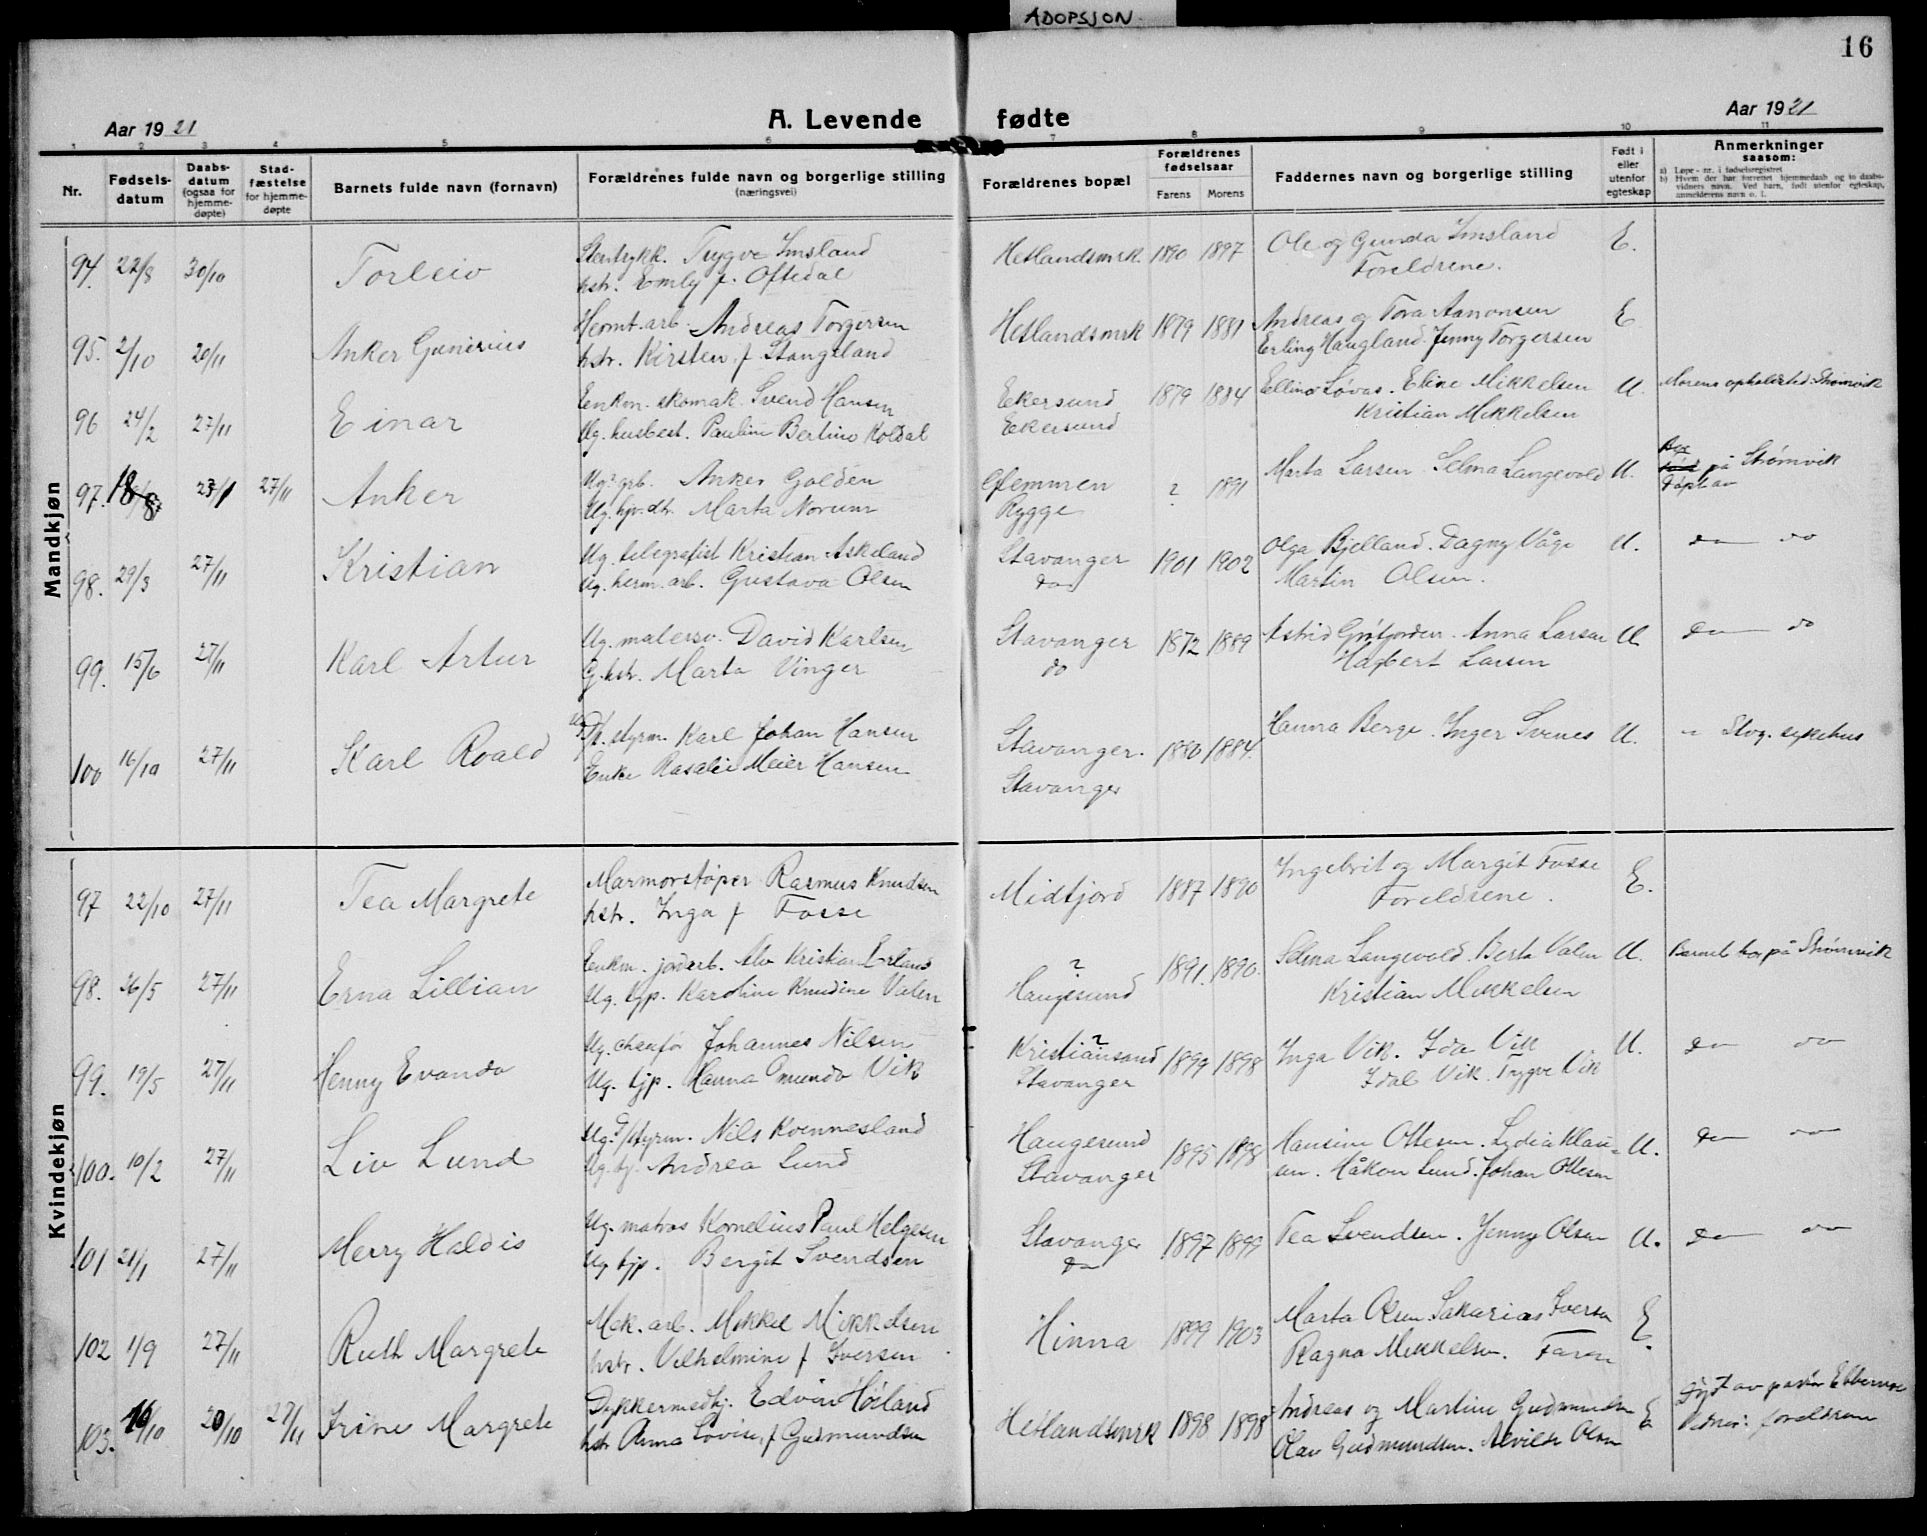 ADOPSJON
16
Aar 1921 A. Levende fødte Aar 1921
1 2 3 4 5 6 7 8 9 10 11
Nr. Fødselsdatum Daabsdatum (ogsaa for hjemmedøpte) Stadfæstelse for hjemmedøpte Barnets fulde navn (fornavn) Forældrenes fulde navn og borgerlige stilling (næringsvei) Forældrenes bopæl Forældrenes fødselsaar Farens Morens Faddernes navn og borgerlige stilling Født i eller utenfor egteskap Anmerkninger saasom:
a) Løpe-nr. i fødselsregistret
b) Hvem der har forrettet hjemmedaab og to daabsvidners navn. Ved barn, født utenfor egteskap, anmelderens navn o. l.
Mandkjøn
94. 22/8 30/10 Torleiv Stentrykk. Trygve Imsland Hetlandsmrk. 1890 1897 Ole og Gunda Imsland E.
hstr. Emly f. Oftedal Foreldrene.
95. 2/10 20/11 Anker Gunerius Hermt. arb. Andreas Torgersen Hetlandsmrk 1879 1881 Andreas og Tora Aanonsen E
hstr. Kirsten f. Stangeland Erling Haugland. Jenny Torgersen
96 24/2 27/11 Einar Enkm. skomak. Svend Hansen Ekersund 1879 1884 Elline Løvas. Eline Mikkelsen U. Morens opholdsted: Strømvik
Ug. husbest. Pauline Bertine Koldal Ekersund Kristian Mikkelsen
97. 18/8 27/11 Anker Anker Golden Glemmen ? 1891 Marta Larsen. Selma Langevold U. på Strømvik
Marta Norum Rygge
98. 29/3 27/11 Kristian Ug. telegrafist Kristian Askeland Stavanger 1901 1902 Olga Bjelland. Dagny Våge U. do do
Ug. herm. arb. Gustava Olsen do Martin Olsen.
99. 15/6 27/11 Karl Artur Ug. malersv. David Karlsen Stavanger 1872 1889 Astrid Anna Larsen U do do
G. hstr. Marta Vinger do Hagbert Larsen
100 16/10 27/11 Karl Roald styrm. Karl Johan Hansen Stavanger. 1880 1884. Hanna Berge. Inger Svenes U. Stvg. sykehus
Enke Rasalie Meier Hansen Stavanger
Kvindekjøn
97 22/10 27/11 Tea Margrete Marmorstøper Rasmus Knudsen Midtjord 1887 1890 Ingebrit og Margit Fosse E.
hstr. Inga f Fosse Foreldrene.
98. 26/5 27/11 Erna Lillian Enkm. jordarb. Kristian Erland ? 1891. 1890. Selma Langevold. Berta Valen U. Barnet bor på Strømvik
Ug. tjp. Karoline Knudine Valen Haugesund Kristian Mikkelsen
99. 19/5 27/11 Henny Evanda Ug. chaufør Johannes Nilsen Kristiansand ? 1899 1898 Inga Vik. Ida Vik U. do do
Ug. tjp. Hanna Omunda Vik Stavanger Idal Vik. Trygve Vik
100. 10/2 27/11 Liv Lund styrm. Nils Kvennesland Haugesund 1895 1898 Hansine Ottesen. Lydia Klau- U. do do
Ug. tj. Andrea Lund Stavanger sen. Håkon Lund. Johan Ottesen
101 21/1 27/11 Merry Haldis Ug. matros Kornelius Paul Helgesen Stavanger 1897 1899 Tea Svendsen. Jenny Olsen U. do do
Ug tjp. Bergit Svendsen do
102 1/9 27/11 Ruth Margrete Mek. arb. Mikkel Mikkelsen Hinna 1899 1903 Marta Olsen. Sakarias Iversen E.
hstr. Vilhelmine f Iversen Ragna Mikkelsen. Faren
103. 16/10 20/10 27/11 Irine Margrete Dykkermedhj. Edvin Høiland Hetlandsmrk 1898 1898 Andreas og Martine Gudmundsen E av pastor
hstr Anna Lovise f Gudmundsen Olav Gudmundsen. Alvilde Olsen Vidner: foreldrene